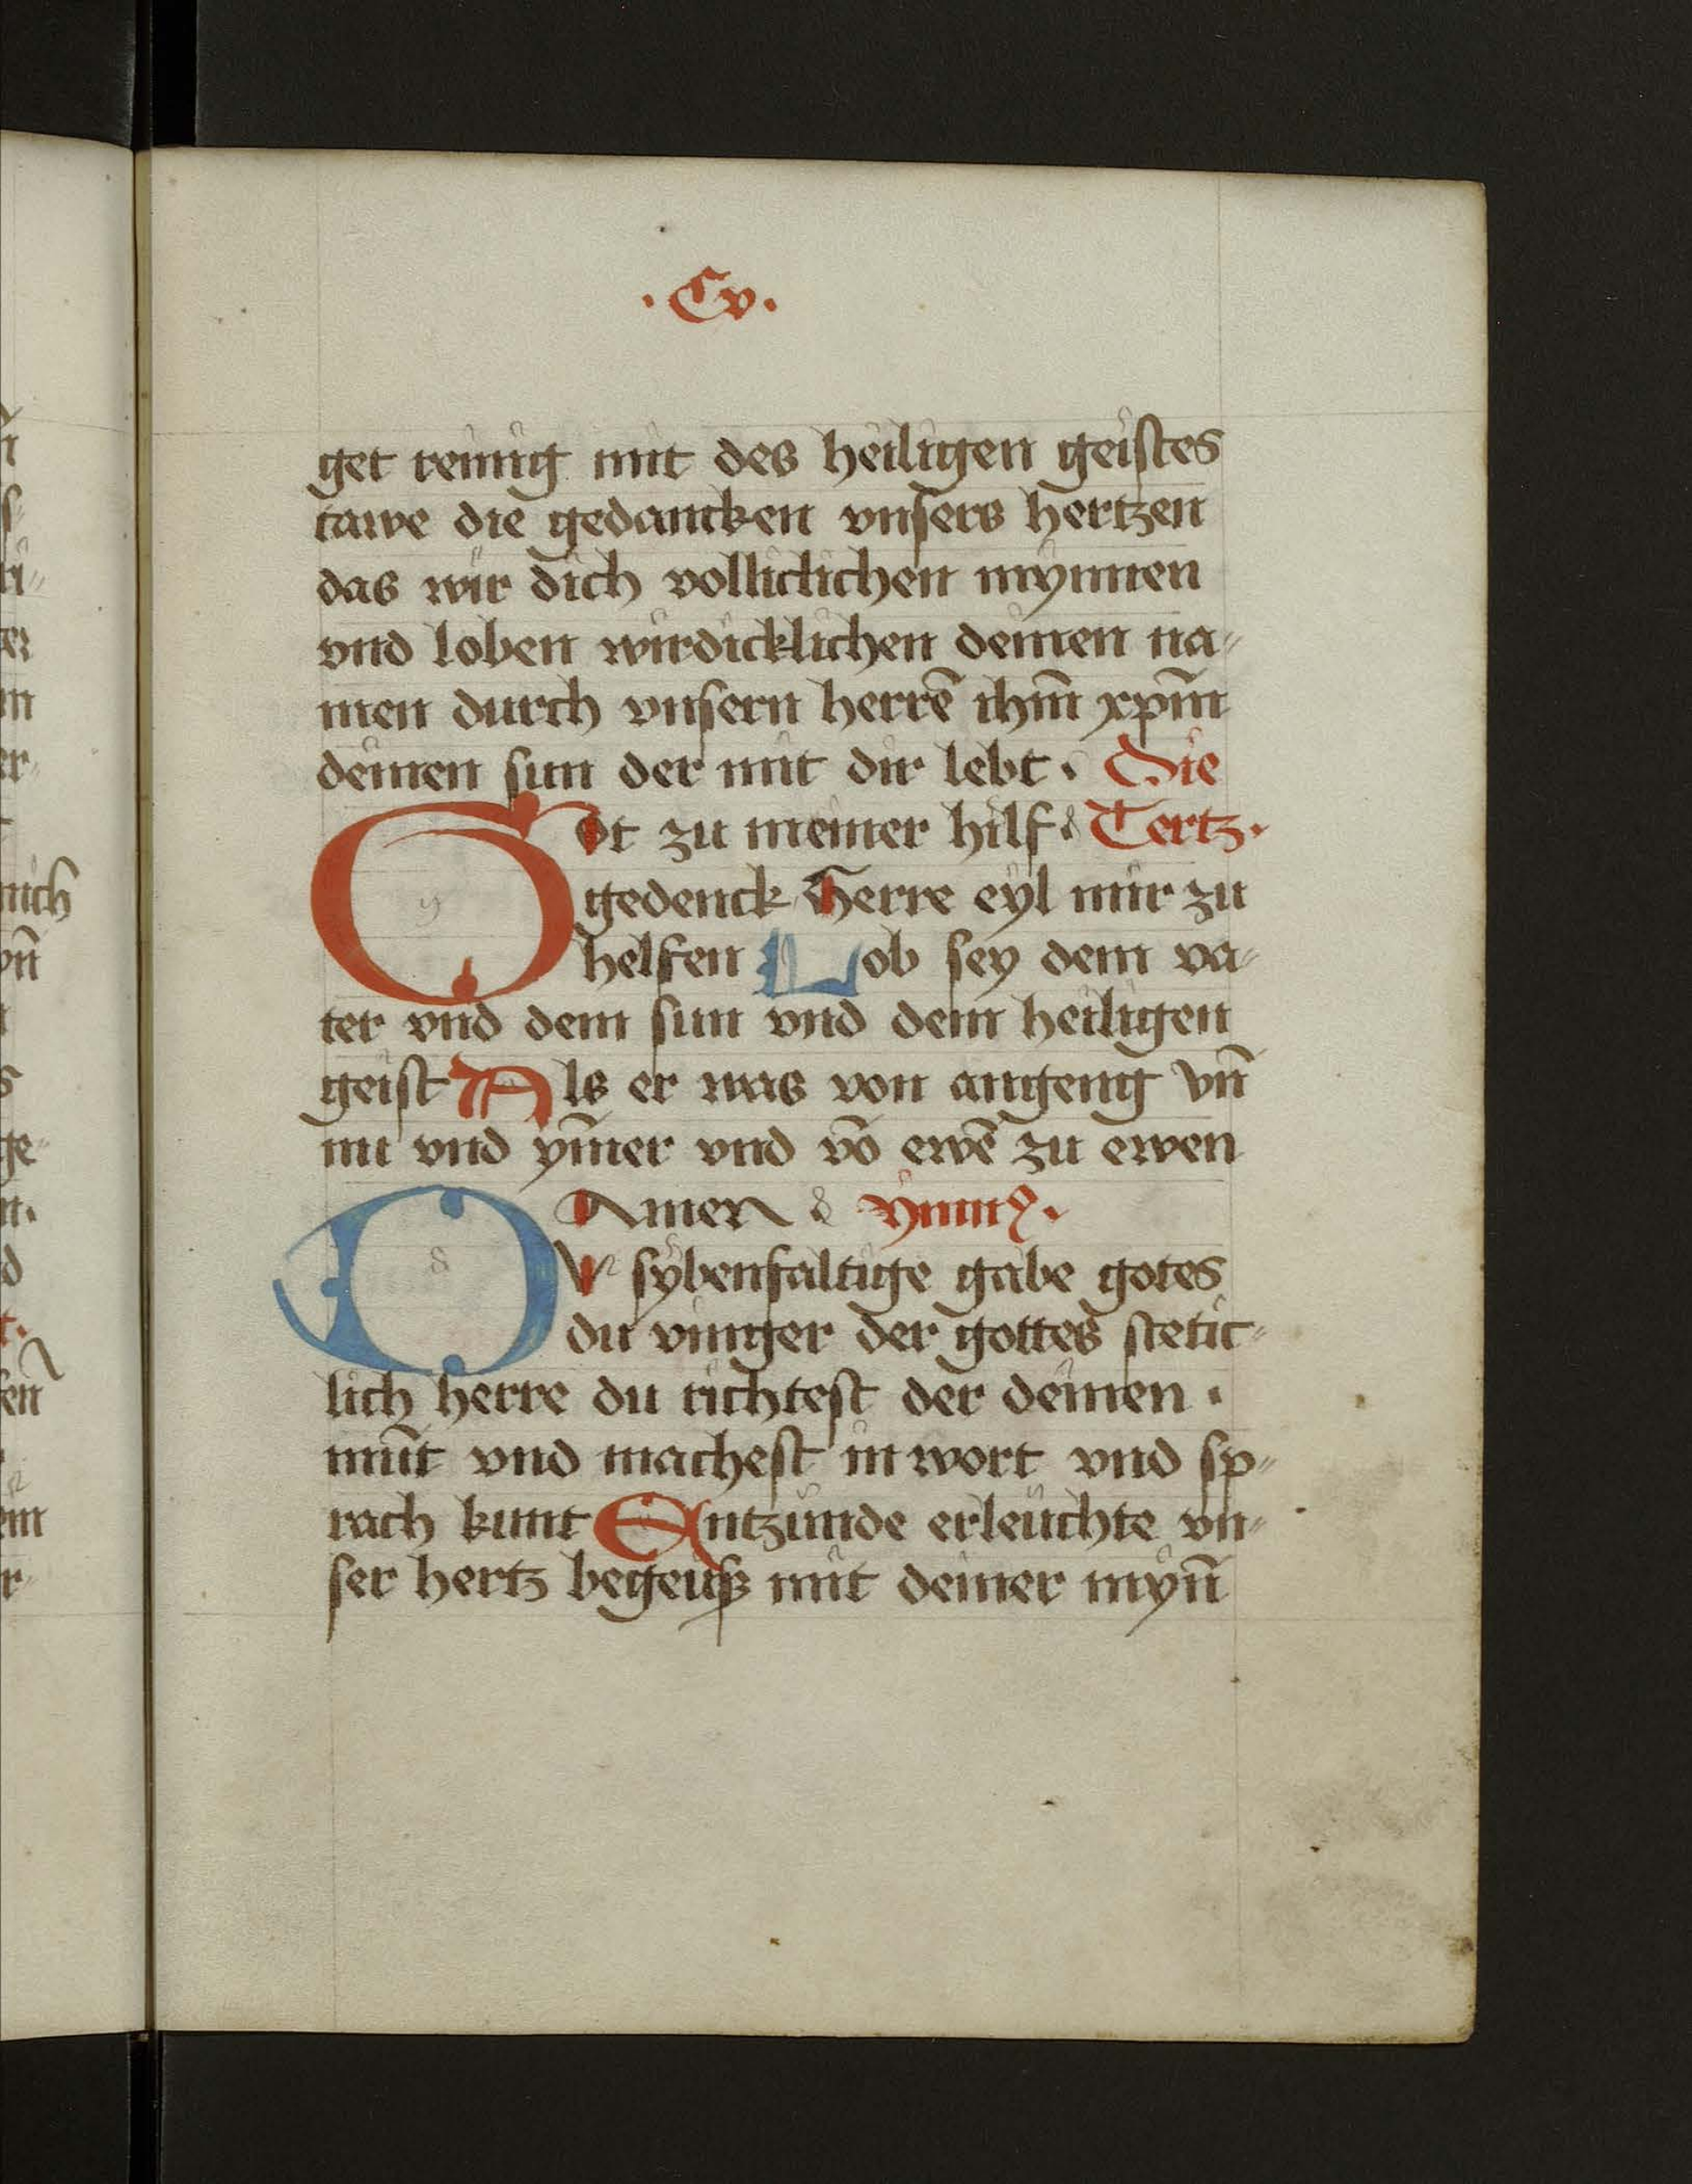 ·Cv·
get reinig mit des heiligen geistes
tawe die gedancken vnsers hertzen
das wir dich volliclichen mynnen
vnd loben wirdicklichen deinen na-
men durch vnsern herrē ihm̄ xpm̄
deinen sun der mit dir lebt · Die
Got zu meiner hilf Tertz·
gedenck Herre eyl mir zu
helffen Lob sey dem va-
ter vnd dem sun vnd dem heiligen
geist Als er was von angeng vn̄
nu vnd ym̄er vnd vō ewē zu ewen
Amen ymnꝰ·
DV sybenfaltige gabe gotes
du vinger der gottes stetic-
lich herre du tichtest der deinen ·
mūt vnd machest in wort vnd sp-
rach kunt Entzünde erleüchte vn-
ser hertz begeuß mit deiner myn̄